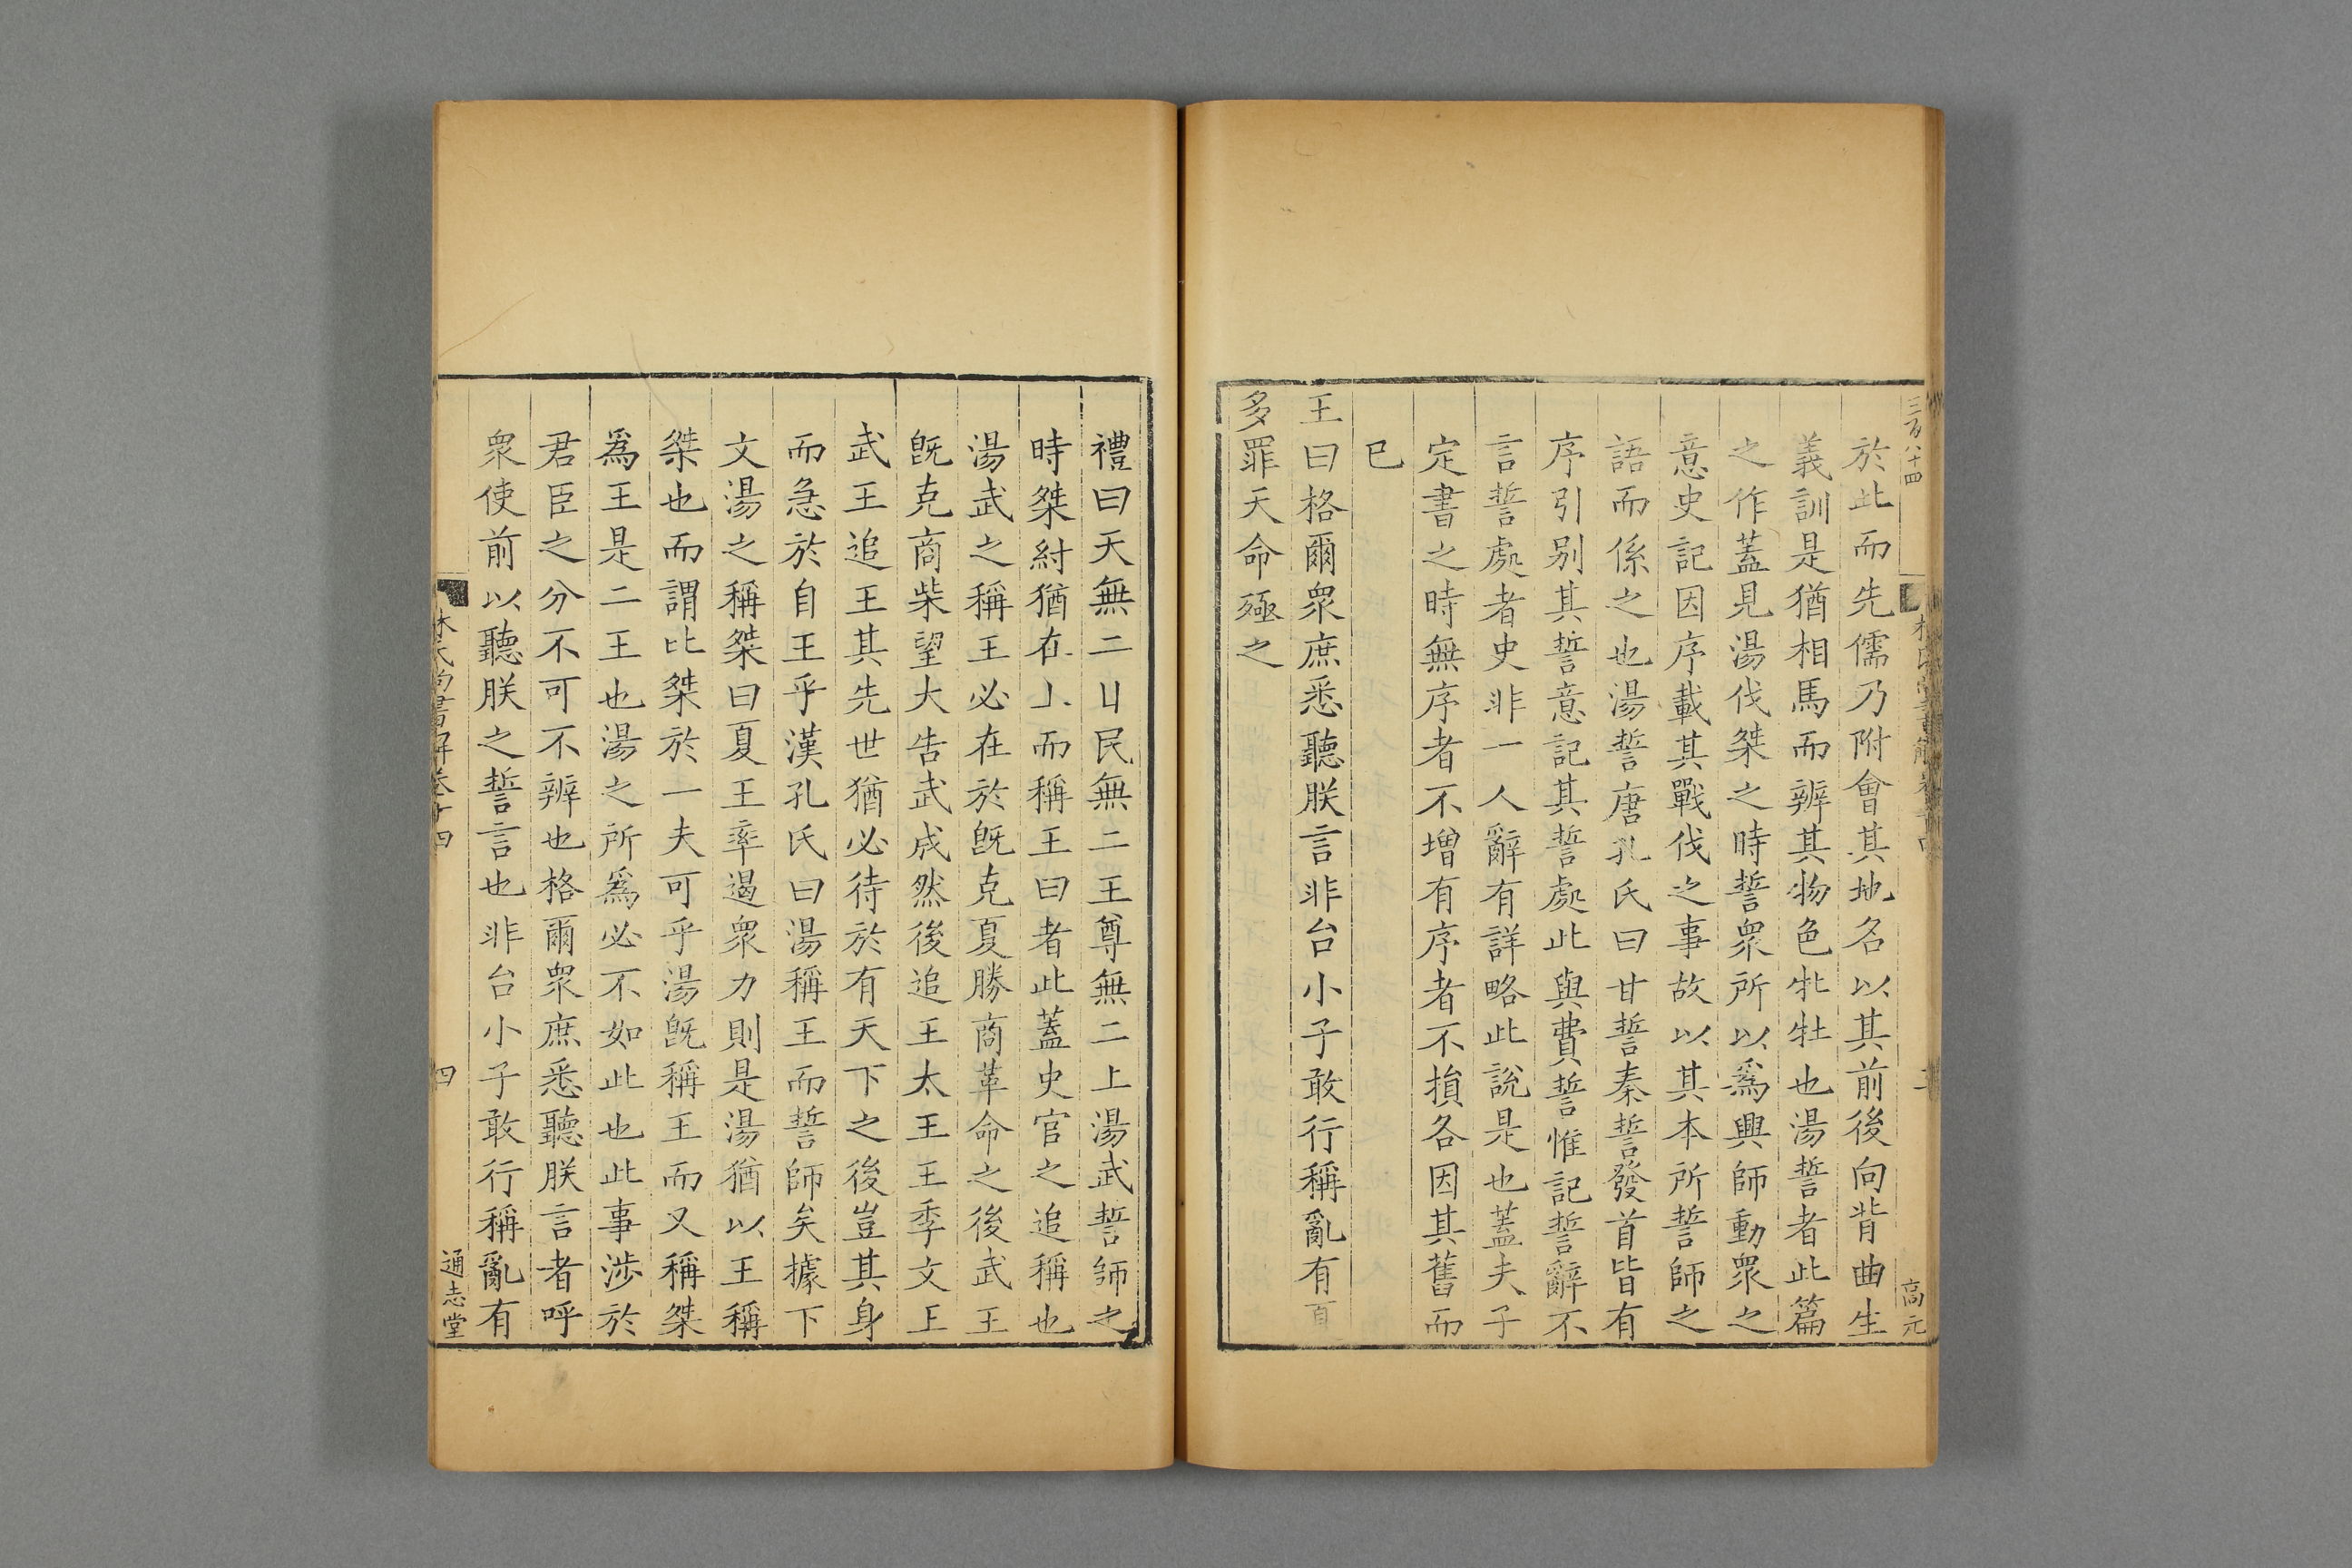 三百八十四
高元
於此而先儒乃附會其地名以其前後向背曲生
義訓是猶相馬而辨其物色牝牡也湯誓者此篇
之作蓋見湯伐桀之時誓衆所以爲興師動衆之
意史記因序載其戰伐之事故以其本所誓師之
語而係之也湯誓唐孔氏曰甘誓秦誓發首皆有
序引别其誓意記其誓處此與費誓惟記誓辭不
言誓處者史非一人辭有詳略此說是也蓋夫子
定書之時無序者不增有序者不損各因其舊而
已
王曰格爾衆庶悉聽朕言非台小子敢行稱亂有
多罪天命殛之
禮曰天無二民無二王尊無二上湯武誓師之
時桀紂猶在而稱王曰者此蓋史官之追稱也
湯武之稱王必在於旣克夏勝商革命之後武王
旣克商柴望大告武成然後追王太王王季文王
武王追王其先世猶必待於有天下之後豈其身
而急於自王乎漢孔氏曰湯稱王而誓師矣據下
文湯之稱桀曰夏王率遏衆力則是湯猶以王稱
桀也而謂比桀於一夫可乎湯旣稱王而又稱桀
爲王是二王也湯之所爲必不如此也此事涉於
君臣之分不可不辨也格爾衆庶悉聽朕言者呼
衆使前以聽朕之誓言也非台小子敢行稱亂有
林氏尚書解卷十四
四
通志堂